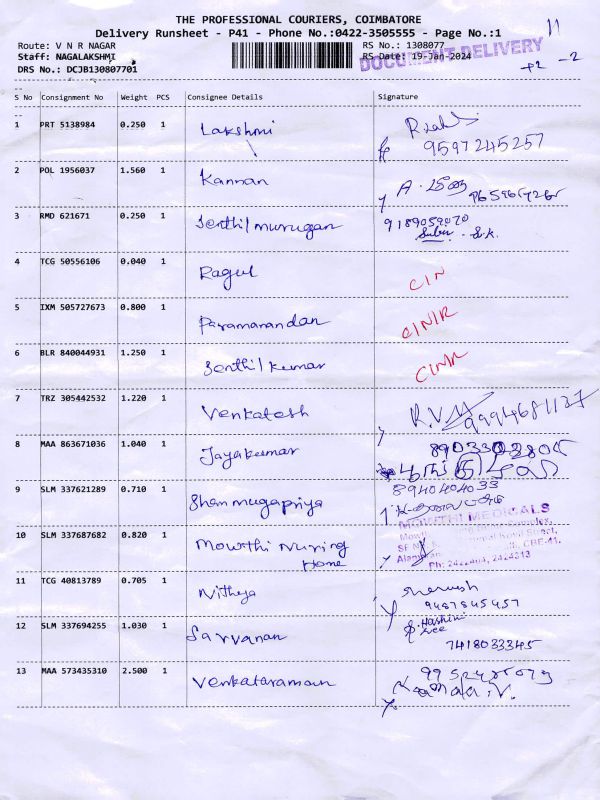 THE PROFESSIONAL COURIERS, COIMBATORE
Delivery Runsheet - P41 - Phone No.:0422-3505555 - Page No.:1
Route: V N R NAGAR
RS No.: 1308077
Staff: NAGALAKSHMI
RS Date: 19-Jan-2024
DOCUMENT DELIVERY
DRS No.: DCJB130807701
11
+2 -2
S No Consignment No Weight PCS Consignee Details Signature
1 PRT 5138984 0.250 1 Lakshmi
9597245257
2 POL 1956037 1.560 1 Kannan
3 RMD 621671 0.250 1 Senthil murugan 9189059070
4 TCG 50556106 0.040 1 Ragul CIN
5 IXM 505727673 0.800 1 Paramanandan CINIR
6 BLR 840044931 1.250 1 Senthil kumar CINIR
7 TRZ 305442532 1.220 1 Venkatesh R.V.M 9994681127
8 MAA 863671036 1.040 1 Jayakumar
9 SLM 337621289 0.710 1 Shanmugapriya 8940404033
MOWTHI MEDICALS
10 SLM 337687682 0.820 1 Mowthi Nursing
Home
CBE-41.
11 TCG 40813789 0.705 1 Nithya
9487845457
12 SLM 337694255 1.030 1 Sarvanan Hashini
7418033345
13 MAA 573435310 2.500 1 Venkataraman